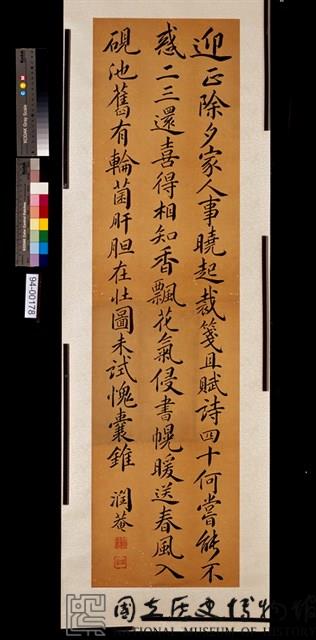 迎正除夕家人事曉起裁箋且賦詩四十何嘗能不
惑二三還喜得相知香飄花氣侵書幌暖送春風入
硯池舊有輪菌肝胆在壯圖未試愧囊錐
潤菴
94-00178
國立歷史博物館
NATIONAL MUSEUM OF HISTORY